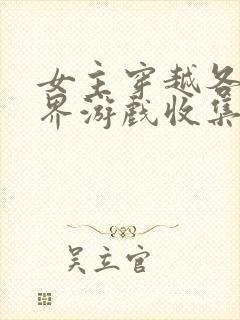 女主穿越各
界游戏收集
吴立官